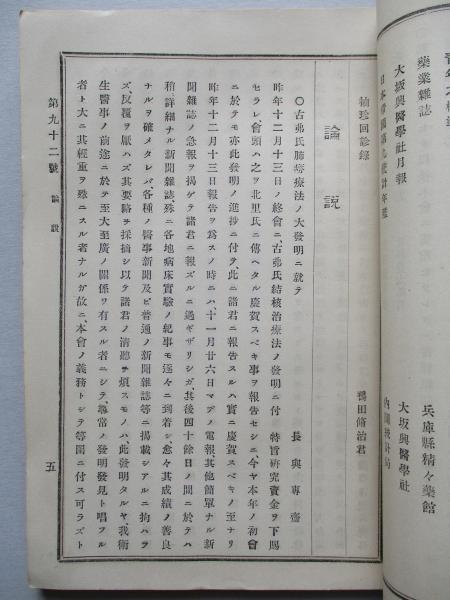 藥業雜誌
兵庫縣精々藥館
大坂興醫學社月報
大坂興醫學社
日本帝國第九統計年鑑
内閣統計局
袖珍回診錄
鴨田脩治君
論説
○古弗氏肺癆療法ノ大發明ニ就テ
長與專齋
昨年十二月十三日ノ終會ニ、古弗氏結核治療法ノ發明ニ付 特旨研究資金ヲ下賜
セラレ會頭ハ之ヲ北里氏ニ傳ヘタル慶賀スベキ事ヲ報告セシニ、今ヤ本年ノ初會
ニ於テモ亦此發明ノ進捗ニ付テ、此ニ諸君ニ報告スルハ實ニ慶賀スベキノ至ナリ
昨年十二月十三日報告ヲ爲スノ時ニハ、十一月廿六日マデノ電報、其他簡單ナル新
聞雜誌ノ急報ヲ揭ゲテ諸君ニ報ズルニ過ギザリシガ、其後四十餘日ノ間ニ於テハ
稍詳細ナル新聞雜誌、殊ニ各地病床實驗ノ紀事モ逐々ニ到着シ、愈々其成績ノ善良
ナルヲ確メタレバ、各種ノ醫事新聞及ビ普通ノ新聞雜誌等ニ揭載シアルニ拘ハラ
ズ、反覆ヲ厭ハズ其要略ヲ採摘シ以テ諸君ノ清聽ヲ煩スモノハ、此發明タルヤ、我術
生醫事ノ前途ニ於テ至大至廣ノ關係ヲ有スル者ニシテ、尋常ノ發明發見ト唱フル
者ト大ニ其輕重ヲ殊ニスル者ナルガ故ニ、本會ノ義務トシテ等閑ニ付ス可ラズト
第九十二號 論説 五